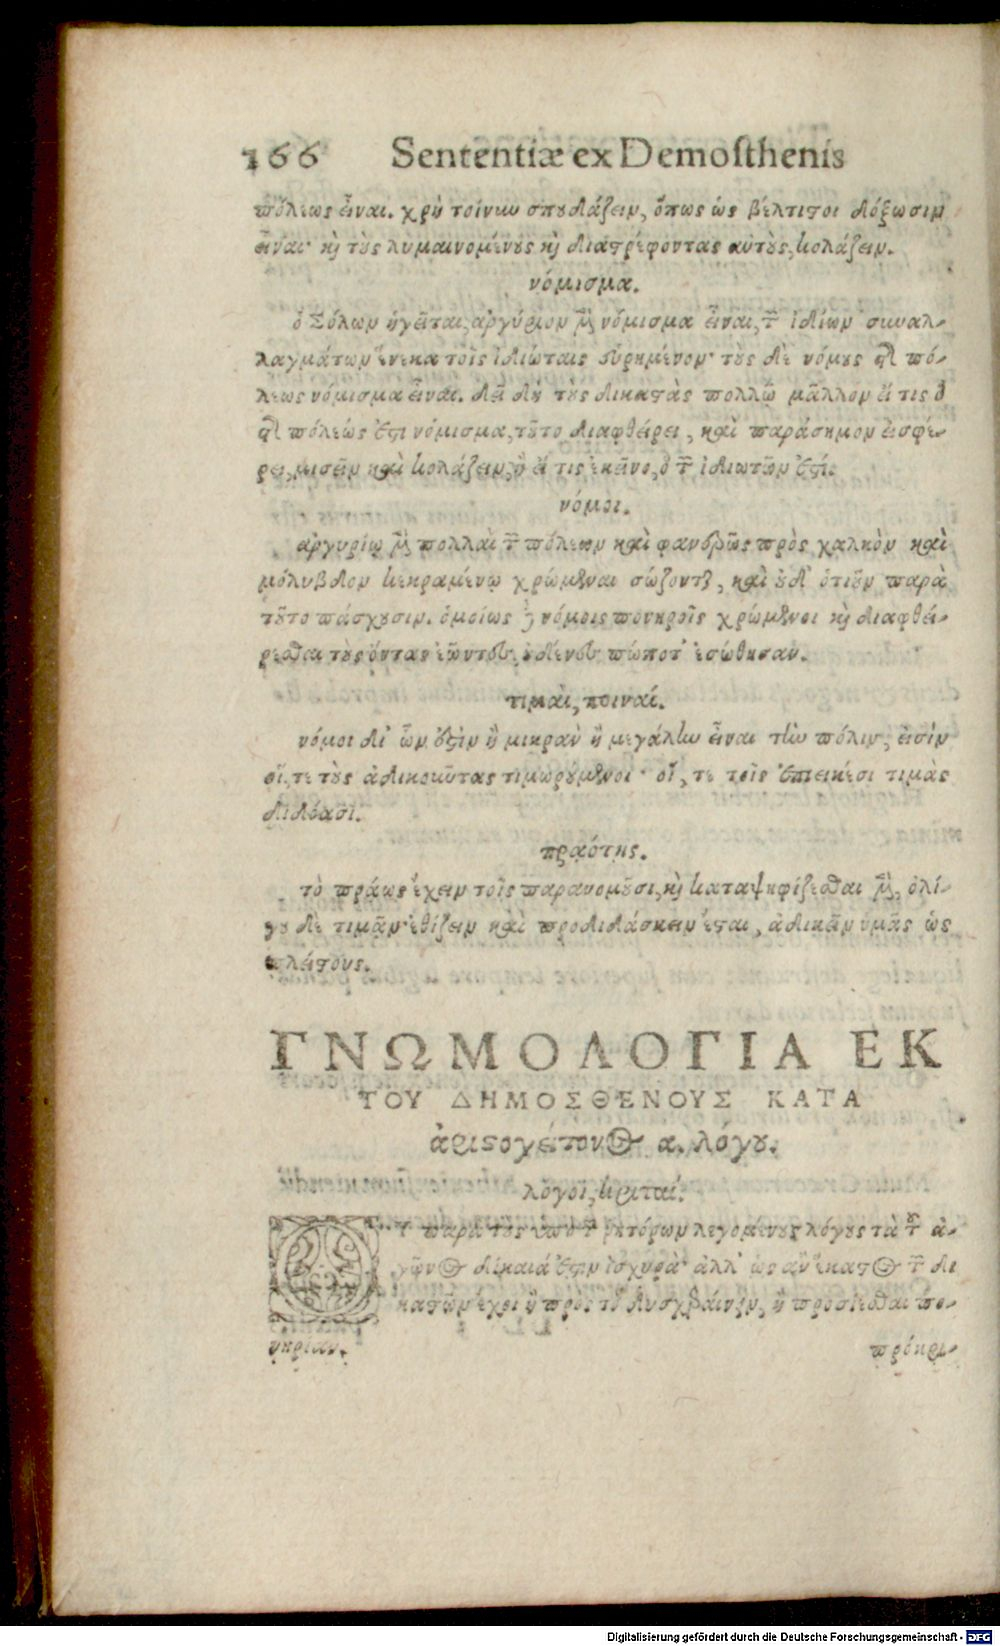 166 Sententiæ ex Demoſthenis
πόλεως εἶναι. χρὴ τοίνυν σπουδάζειν, ὅπως ὡς βέλτιστοι δόξωσιν
εἶναι· καὶ τοὺς λυμαινομένους καὶ διαστρέφοντας αὐτοὺς, κολάζειν.
νόμισμα.
ὁ Σόλων ἡγεῖται, ἀργύριον μὲν νόμισμα εἶναι, τῶν ἰδίων συναλ-
λαγμάτων ἕνεκα τοῖς ἰδιώταις εὑρημένον· τοὺς δὲ νόμους τῆς πό-
λεως νόμισμα εἶναι. δεῖ δὴ τοὺς δικαστὰς πολλῷ μᾶλλον εἴ τις ὃ
τῆς πόλεώς ἐστι νόμισμα, τοῦτο διαφθείρει, καὶ παράσημον εἰσφέ-
ρει, μισεῖν καὶ κολάζειν, ἢ εἴ τις ἐκεῖνο, ὃ τῶν ἰδιωτῶν ἐστί.
νόμοι.
ἀργυρίῳ μὲν πολλαὶ τῶν πόλεων καὶ φανερῶς πρὸς χαλκὸν καὶ
μόλυβδον κεκραμένῳ χρώμεναι σώζονται, καὶ οὐδ' ὁτιοῦν παρὰ
τοῦτο πάσχουσιν. ὁμοίως δὲ νόμοις πονηροῖς χρώμενοι καὶ διαφθεί-
ρεσθαι τοὺς ὄντας ἐῶντες, οὐδένες πώποτ' ἐσώθησαν.
τιμαὶ, ποιναί.
νόμοι δι' ὧν ἐστὶν ἢ μικρὰν ἢ μεγάλην εἶναι τὴν πόλιν, εἰσὶν
οἵ, τε τοὺς ἀδικοῦντας τιμωρούμενοι· οἵ, τε τοῖς ἐπιεικέσι τιμὰς
διδόασι.
πραότης.
τὸ πράως ἔχειν τοῖς παρανομοῦσι, καὶ καταψηφίζεσθαι μὲν, ὀλί-
γου δὲ τιμᾷν ἐθίζειν καὶ προδιδάσκειν ἔσται, ἀδικεῖν ὑμᾶς ὡς
πλείστους.
ΓΝΩΜΟΛΟΓΙΑ ΕΚ
ΤΟΥ ΔΗΜΟΣΘΕΝΟΥΣ ΚΑΤΑ
ἀριστογείτονος α. λόγου.
λόγοι, κριταί.
Οὐ παρὰ τοὺς ὑπὸ τῶν ῥητόρων λεγομένους λόγους τὰ τοῦ ἀ-
γῶνος δίκαιά ἐστιν ἰσχυρά· ἀλλ' ὡς ἂν ἕκαστος τῶν δι
καστῶν ἔχοι ἢ πρὸς τὸ δυσχεραίνειν, ἢ προσίεσθαι πο-
νηρίαν.
πρόκρι-
Digitalisierung gefördert durch die Deutsche Forschungsgemeinschaft - DFG